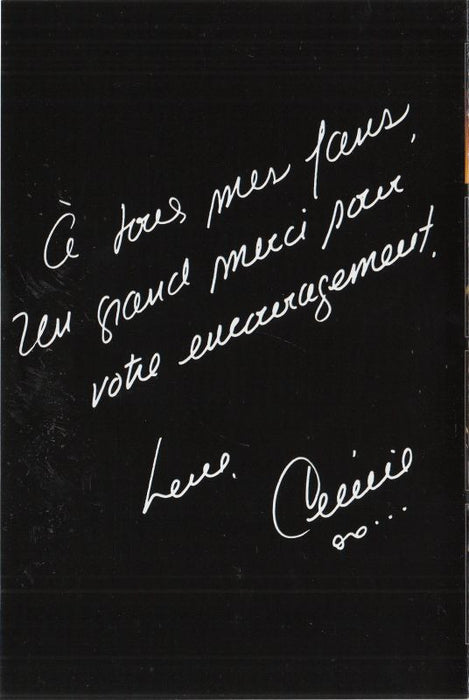 À tous mes fans,
un grand merci pour
votre encouragement.
Love. Céline
xx...